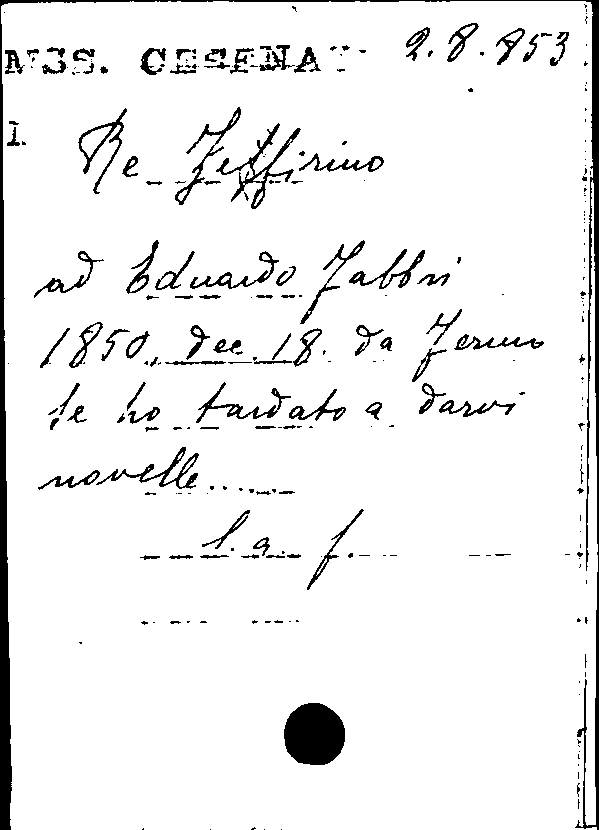 MSS. CESENATI 2.8.853
1
Re Zeffirino
ad Eduardo Fabbri
1850, dec. 18. da Fermo
Se ho tardato a darvi
novelle......
l. a. f.